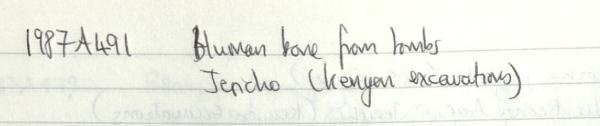 1987A491 Human bone from tombs
Jericho (Kenyon excavations)